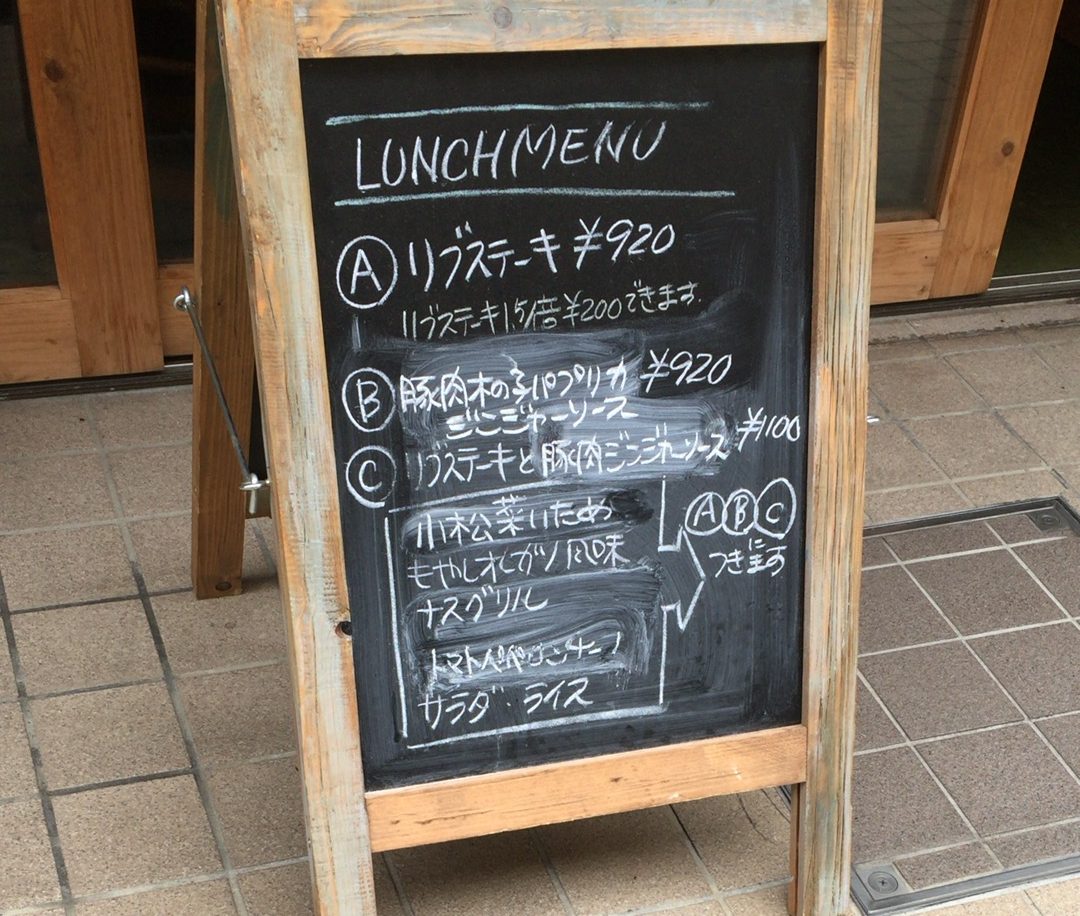 LUNCH MENU
Ⓐ リブステーキ ¥920
リブステーキ1.5倍 ¥200できます.
Ⓑ 豚肉木の子パプリカ ¥920
ジンジャーソース
Ⓒ リブステーキと豚肉ジンジャーソース ¥1100
小松菜いため
もやしオレガノ風味
ナスグリル
トマトペペロンチーノ
サラダ・ライス
ⒶⒷⒸ
に
つきます